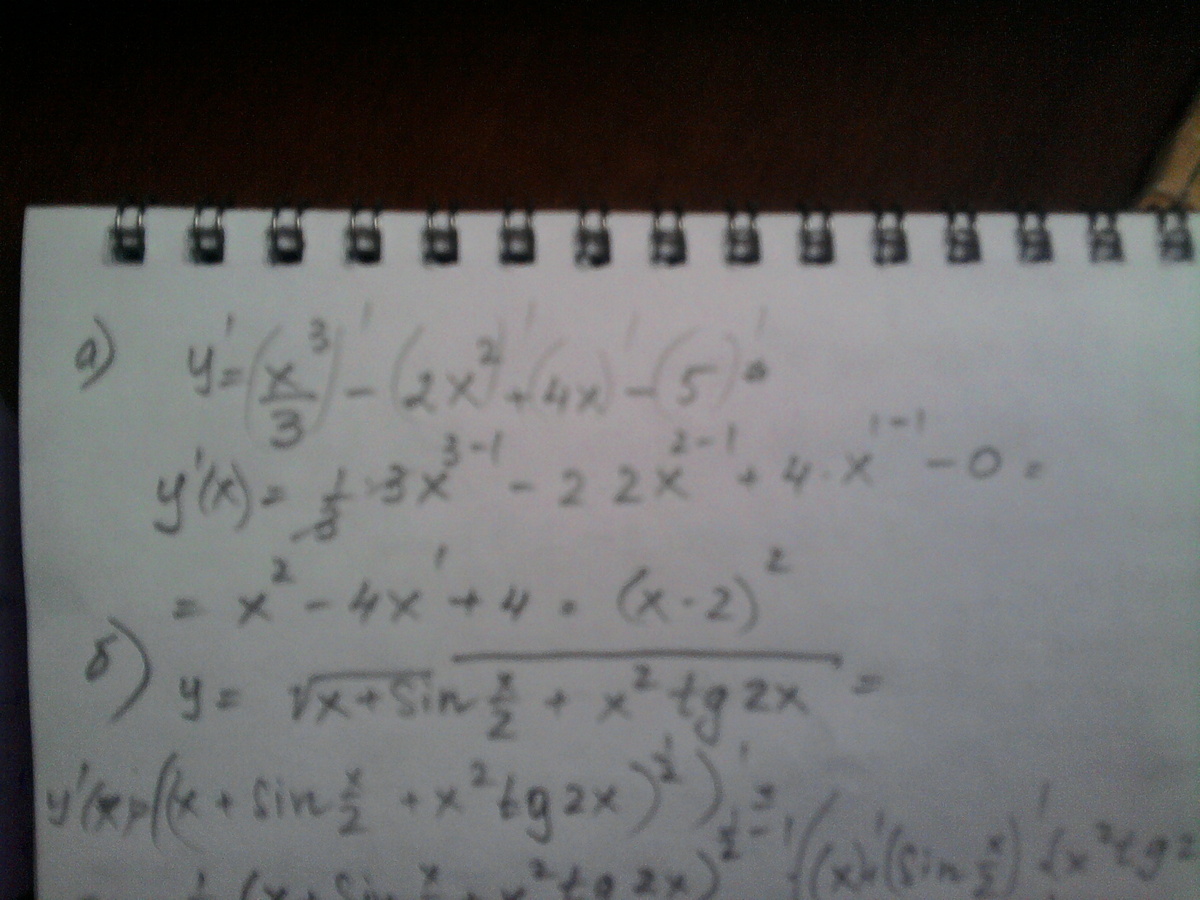 а) y' = (x³/3)' - (2x²)' + (4x)' - (5)' =
y'(x) = 1/3 · 3x³⁻¹ - 2 2x²⁻¹ + 4 · x¹⁻¹ - 0 =
= x² - 4x¹ + 4 = (x - 2)²
б) y = √(x + sin x/2 + x² tg 2x) =
y'(x) = ((x + sin x/2 + x² tg 2x)^½)' =
= ½ (x + sin x/2 + x² tg 2x)^(½-1) · ((x)' + (sin x/2)' + (x² tg 2